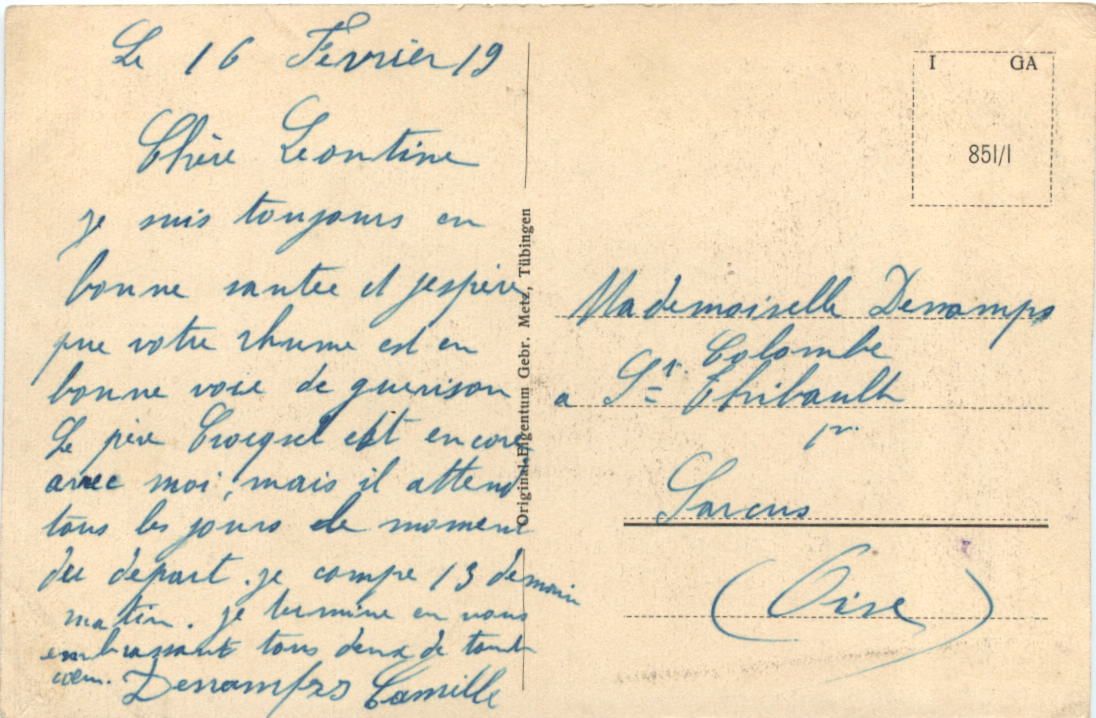 Le 16 Fevrier 19
Chère Leontine
je suis toujours en
bonne santee et jespère
que votre rhume est en
bonne voie de guerison
Le père Crocquet est encore
avec moi, mais il attend
tous les jours le moment
du depart. je compte 13 demain
matin. je termine en vous
embrassant tous deux de tout
coeur. Desramps Camille
Original-Eigentum Gebr. Metz, Tübingen
I GA
851/I
Mademoiselle Desramps
Colombe
a St Thibault
pr.
Sarcus
(Oise)